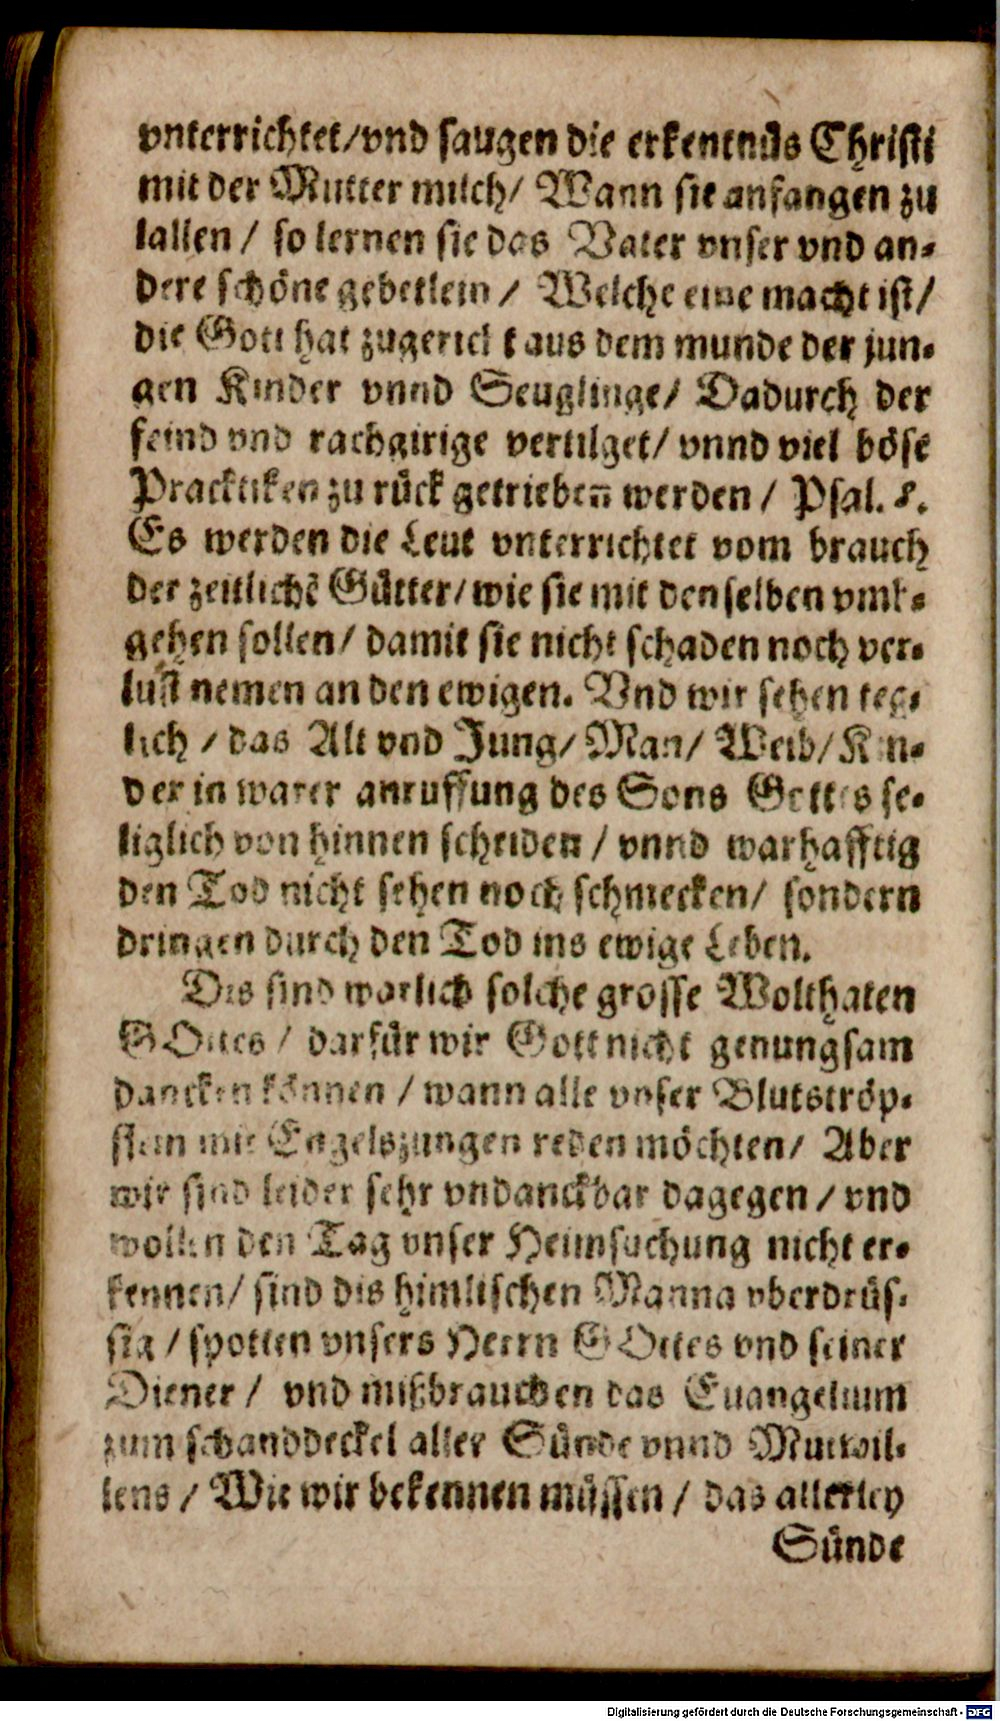 vnterrichtet/vnd saugen die erkentnüs Christi
mit der Mutter milch/ Wann sie anfangen zu
lallen / so lernen sie das Vater vnser vnd an-
dere schöne gebetlein / Welche eine macht ist/
die Gott hat zugericht aus dem munde der jun-
gen Kinder vnnd Seuglinge/ Dadurch der
feind vnd rachgirige vertilget/ vnnd viel böse
Practiken zu rück getriebeñ werden / Psal. 8.
Es werden die Leut vnterrichtet vom brauch
der zeitlichē Gütter/ wie sie mit denselben vmb-
gehen sollen/ damit sie nicht schaden noch ver-
lust nemen an den ewigen. Vnd wir sehen teg-
lich / das Alt vnd Jung/ Man/ Weib/ Kin-
der in warer anruffung des Sons Gottes se-
liglich von hinnen scheiden / vnnd warhafftig
den Tod nicht sehen noch schmecken/ sondern
dringen durch den Tod ins ewige Leben.
Dis sind warlich solche grosse Wolthaten
GOttes / darfür wir Gott nicht genungsam
dancken können / wann alle vnser Blutströp-
flein mit Engelszungen reden möchten/ Aber
wir sind leider sehr vndanckbar dagegen / vnd
wollen den Tag vnser Heimsuchung nicht er-
kennen/ sind dis himlischen Manna vberdrüs-
sig / spotten vnsers Herrn GOttes vnd seiner
Diener / vnd mißbrauchen das Euangelium
zum schanddeckel aller Sünde vnnd Mutwil-
lens / Wie wir bekennen müssen / das allerley
Sünde
Digitalisierung gefördert durch die Deutsche Forschungsgemeinschaft - DFG